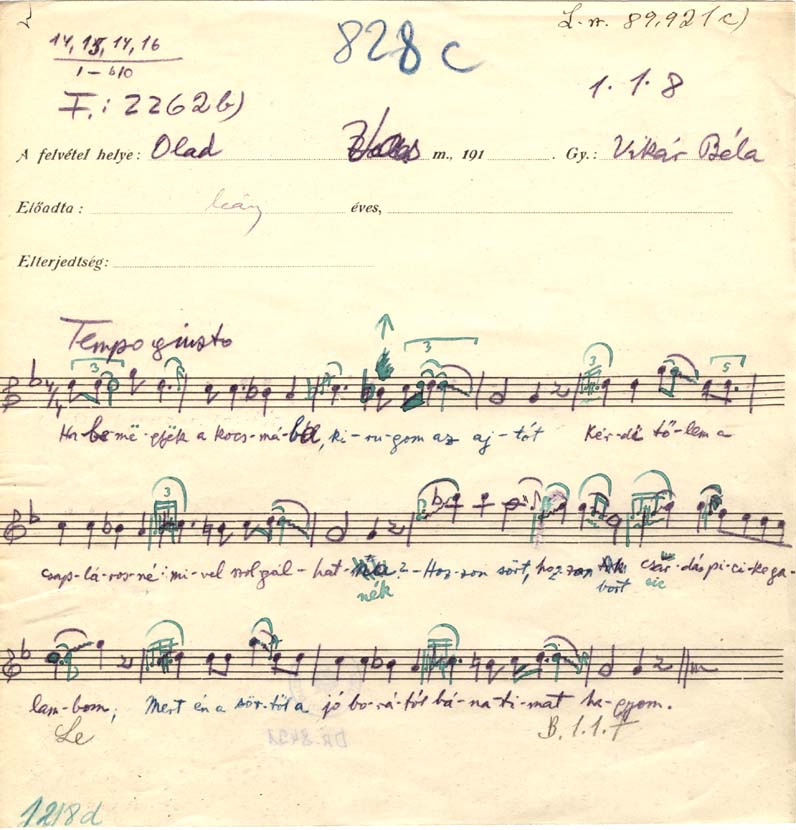 L. sz. 89.921c)
14, 15, 14, 16
828c
1 – b10
1. 1. 8
F.: 2262b)
A felvétel helye: Olad m., 191 . Gy.: Vikár Béla
Előadta: leány éves,
Elterjedtség:
Tempo giusto
3 3 3 5
Ha be më-gyëk a kocs-má-ba, ki-ru-gom az aj-tót Kér-di tő-lem a
3
csap-lá-ros-né: mi-vel szol-gál-hat-nék? - Hoz-zon sört, hoz-zon bort csár-dás pi-ci ke ga-
sic
lam-bom; Mert én a sör-től a jó bo-rá-tól bá-na-ti-mat ha-gyom.
Le
B. 1.1.7
1218d